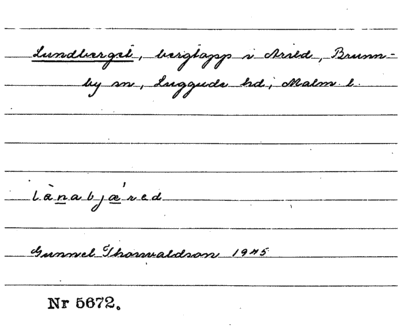 Lundberget, bergtopp i Arild, Brunn-
by sn, Luggude hd, Malm. l.
lànabjǽred
Gunnel Thorvaldson 1945
Nr 5672.